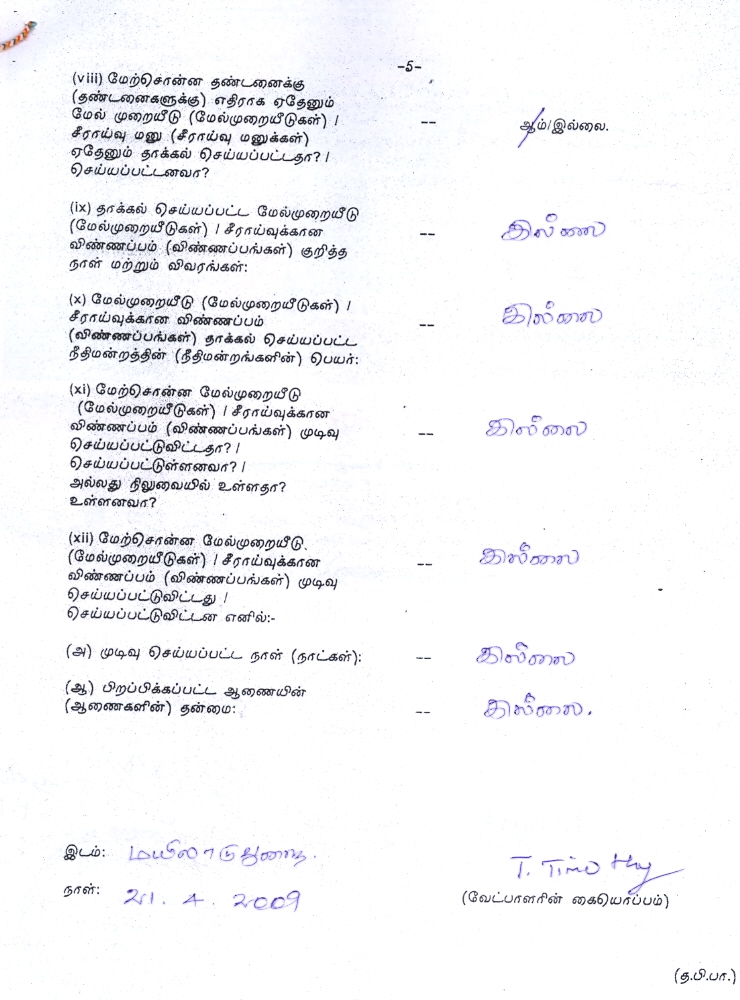 -5-
(viii) மேற்சொன்ன தண்டனைக்கு
(தண்டனைகளுக்கு) எதிராக ஏதேனும்
மேல் முறையீடு (மேல்முறையீடுகள்) /
சீராய்வு மனு (சீராய்வு மனுக்கள்) -- ஆம்/இல்லை.
ஏதேனும் தாக்கல் செய்யப்பட்டதா? /
செய்யப்பட்டனவா?
(ix) தாக்கல் செய்யப்பட்ட மேல்முறையீடு
(மேல்முறையீடுகள்) / சீராய்வுக்கான -- இல்லை
விண்ணப்பம் (விண்ணப்பங்கள்) குறித்த
நாள் மற்றும் விவரங்கள்:
(x) மேல்முறையீடு (மேல்முறையீடுகள்) /
சீராய்வுக்கான விண்ணப்பம் -- இல்லை
(விண்ணப்பங்கள்) தாக்கல் செய்யப்பட்ட
நீதிமன்றத்தின் (நீதிமன்றங்களின்) பெயர்:
(xi) மேற்சொன்ன மேல்முறையீடு
(மேல்முறையீடுகள்) / சீராய்வுக்கான
விண்ணப்பம் (விண்ணப்பங்கள்) முடிவு -- இல்லை
செய்யப்பட்டுவிட்டதா? /
செய்யப்பட்டுள்ளனவா? /
அல்லது நிலுவையில் உள்ளதா?
உள்ளனவா?
(xii) மேற்சொன்ன மேல்முறையீடு
(மேல்முறையீடுகள்) / சீராய்வுக்கான -- இல்லை
விண்ணப்பம் (விண்ணப்பங்கள்) முடிவு
செய்யப்பட்டுவிட்டது /
செய்யப்பட்டுவிட்டன எனில்:-
(அ) முடிவு செய்யப்பட்ட நாள் (நாட்கள்): -- இல்லை
(ஆ) பிறப்பிக்கப்பட்ட ஆணையின்
(ஆணைகளின்) தன்மை: -- இல்லை.
இடம்: மயிலாடுதுறை.
நாள்: 21. 4. 2009
T. Timothy
(வேட்பாளரின் கையொப்பம்)
(த.பி.பா.)